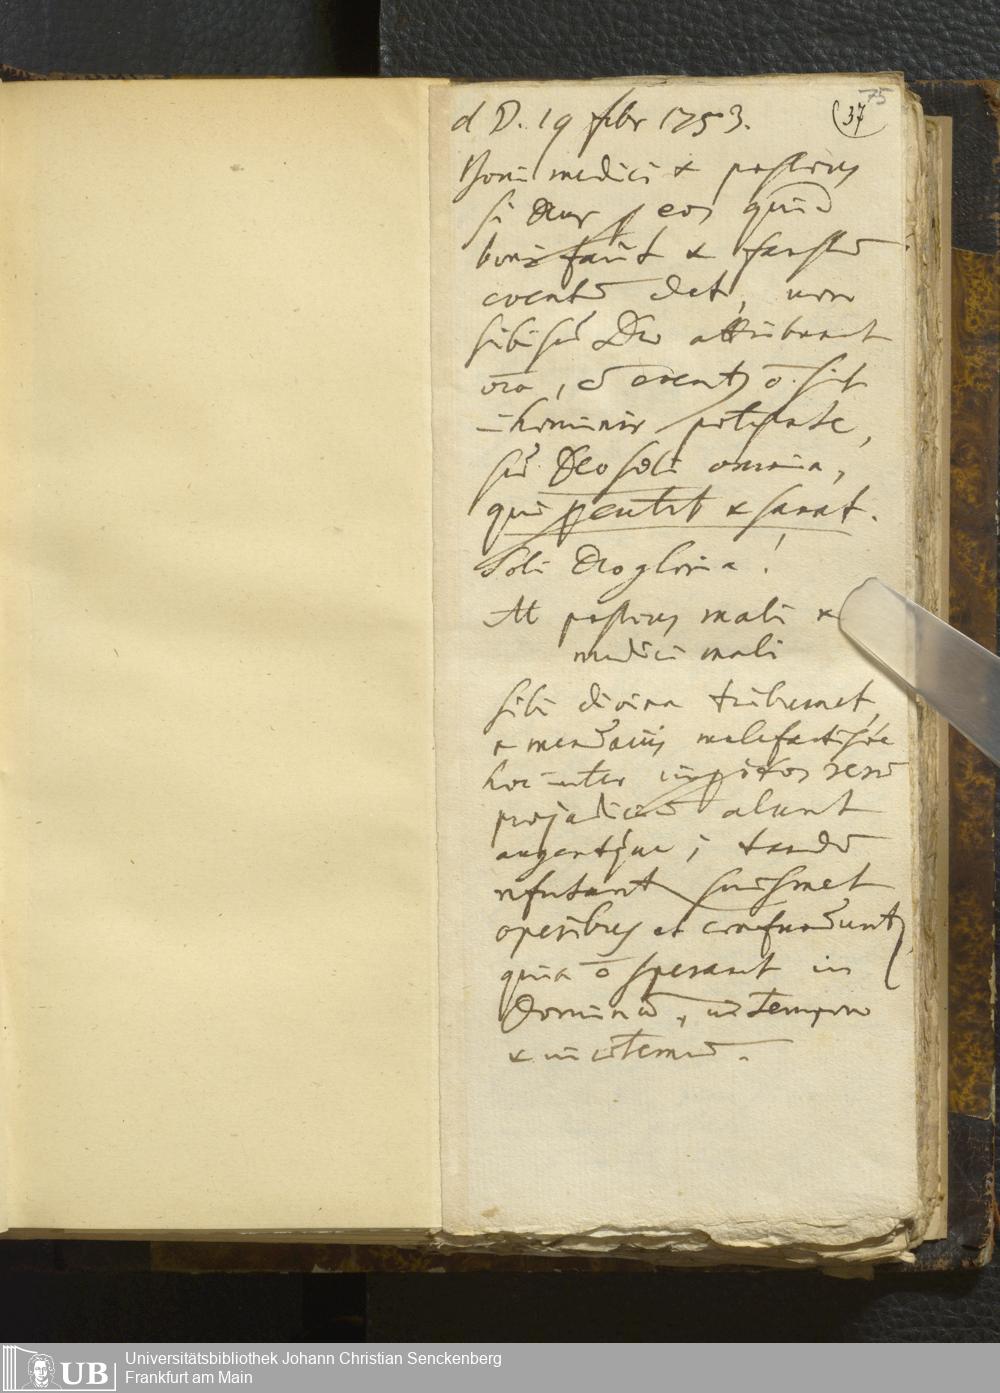 d D. 19 febr 1753.
(37
75
Boni medici & pastores
si Deus p eos quid
boni facit & faustū
eventū det, non
sibi sed Deo attribuunt
oīa, cū event9 ō sit
ī hominis potestate,
sed Deo soli omnia,
qui & sanat.
Soli Deo gloria!
At pastores mali &
medici mali
sibi divina tribuunt,
& mendaciis
hoc inter rerū
alunt
augentque; tandē
suismet
operibus et confundunt
quia ō sperant in
Dominū, in tempore
& in aeternū.
UB
Universitätsbibliothek Johann Christian Senckenberg
Frankfurt am Main